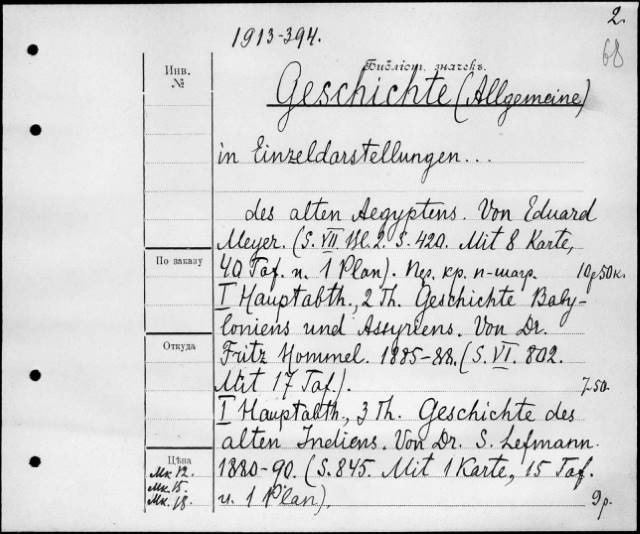 2.
68
1913-394.
Библіот. значекъ.
Инв.
№
Geschichte (Allgemeine)
in Einzeldarstellungen...
des alten Aegyptens. Von Eduard
Meyer. (S. VII Bl. 2. S. 420. Mit 8 Karte,
По заказу
40 Taf. u. 1 Plan). Пер. кр. п-шагр. 10р50к.
I Hauptabth., 2 Th. Geschichte Baby-
loniens und Assyriens. Von Dr.
Откуда
Fritz Hommel. 1885-88. (S. VI. 802.
Mit 17 Taf.). 7.50.
I Hauptabth., 3 Th. Geschichte des
alten Indiens. Von Dr. S. Lefmann.
Цѣна
Мк. 12.
Мк. 15.
Мк. 18.
1880-90. (S. 845. Mit 1 Karte, 15 Taf.
u. 1 Plan). 9р.